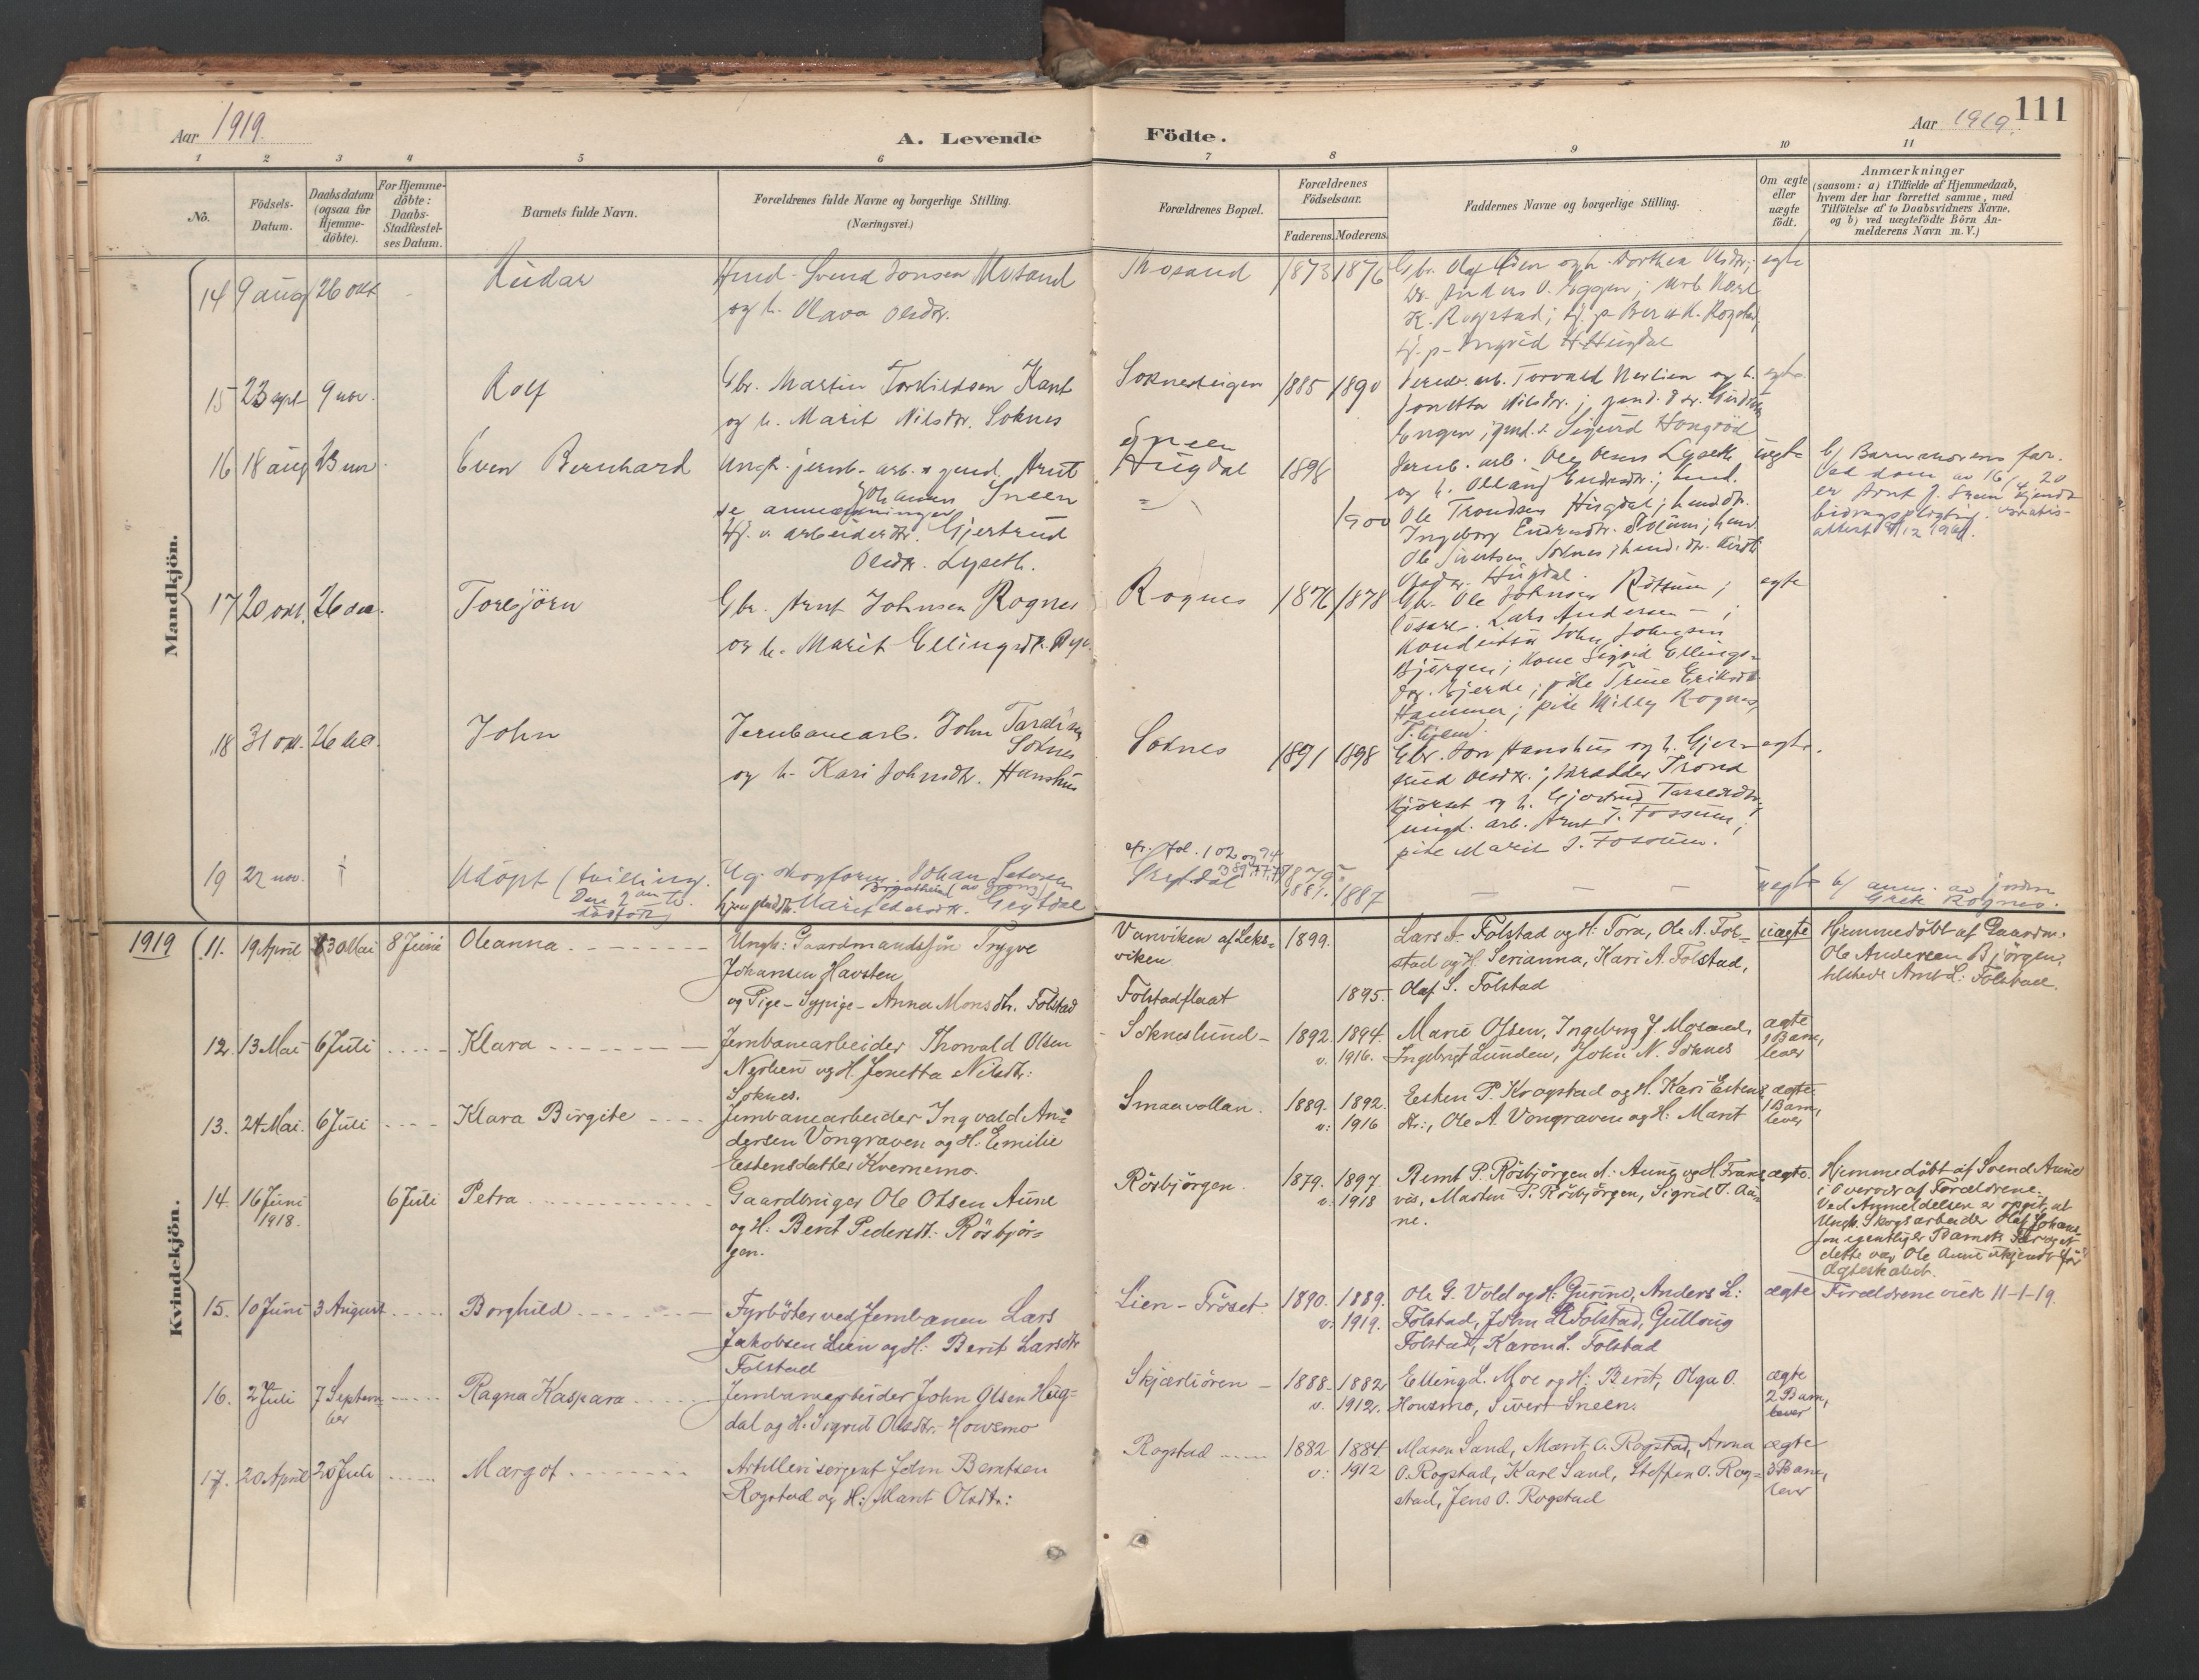 Aar 1919.
A. Levende
Födte.
Aar 1919.
111
1 2 3 4 5 6 7 8 9 10 11
No.
Födsels-
Datum.
Daabsdatum
(ogsaa for
Hjemme-
döbte).
For Hjemme-
döbte:
Daabs-
Stadfestel-
ses Datum.
Barnets fulde Navn.
Forældrenes fulde Navne og borgerlige Stilling.
(Næringsvei.)
Forældrenes Bopæl.
Forældrenes
Födselsaar.
Faderens. Moderens.
Faddernes Navne og borgerlige Stilling.
Om ægte
eller
uægte
födt.
Anmærkninger
(saasom: a) i Tilfælde af Hjemmedaab,
hvem der har forrettet samme, med
Tilföielse af to Daabsvidners Navne,
og b) ved uægtefödte Börn An-
melderens Navn m. V.)
Mandkjön.
14 9 aug 26 okt Reidar
Svend Jonsen Mosand
og h. Olava Olsdtr.
Mosand 1873 1876
og h. Dorthea Olsdtr.;
Anders O. Eggen; arb. Karl
K. Rogstad; tj. p. Berit K. Rogstad,
tj. p. Ingrid H. Hugdal
egte
15 23 sept 9 nov. Rolf
Gbr. Martin Torkildsen Kant
og h. Marit Nilsdtr. Soknes
1885 1890
Jernb. arb. Torvald Nerlien og h.
Jonetta Nilsdtr.;
Engen; Sigurd
egte
16 18 aug 23 nov. Even Bernhard
Ungk. jernb. arb. Arnt
Johansen Sneen
se anmerkninger
tj. v. arbeiderdtr. Gjertrud
Olsdtr. Lyseth.
Sneen
Hugdal 1896
1900
Jernb. arb. Ole Olsen Lyseth
og h.
Ole Trondsen Hugdal;
Ingeborg Endresdtr. Solum;
Ole Sivertsen Soknes;
Olsdtr. Hugdal.
uegte
b/ Barnemorens far.
Ved dom av 16/4 20
er Arnt J. Sneen kjendt
bidragspligtig.
17 20 okt. 26 dec. Torbjörn
Gbr. Arnt Johnsen Rognes
og h. Marit Ellingsdtr.
Rognes 1876 1878
Gbr. Ole Johnsen;
Lars Andersen - ;
Konduktör John Johnsen
Bjørgen; Kone Sigrid Ellings-
dtr. Gjerde; pike Trine Eriksdtr.
Hammer; pike Milly Rognes,
T.hjem.
egte
18 31 okt. 26 dec. John
Jernbanearb. John
Soknes
og h. Kari Johnsdtr. Hanshus
Soknes 1891 1898
Gbr. Jon Hanshus og h. Gjer-
trud Olsdtr.; skrædder Trond
og h. Gjertrud
ungk. arb. Arnt T. Fossum;
pike Marit T. Fossum.
egte.
19 22 nov. † Udöpt (tvilling.
Den 2
dödfødt)
Ug. Johan Petersen
Marit Pedersdtr. Grytdal
cfr. fol. 102 og 94
Grytdal 1887
— — —
uegte
b/ anm. av jordm.
Grete Rognes.
Kvindekjön.
1919 11. 19 April 30 Mai 8 Juni Oleanna
Ungk: Gaardmandssön Trygve
Johansen Havsten
og Pige - Sypige - Anna Monsdtr. Folstad
Vanviken af Leks-
viken
Folstadflaat
1899.
1895.
Lars A. Folstad og H. Tora, Ole A. Fol-
stad og H. Serianna, Kari A. Folstad,
Olaf S. Folstad
uægte
Hjemmedöbt af Gaardm.
Ole Andersen Bjørgen,
tilstede Arnt L. Folstad.
12. 13 Mai 6 Juli Klara
Jernbanearbeider Thorvald Olsen
Nerlien og H. Jonetta Nilsdtr:
Soknes.
Sokneslund - 1892. 1894.
v. 1916.
Marie Olsen, Ingeborg J. Mosand,
Ingebrigt Lunden, John N. Soknes
ægte
1 Barn,
lever
13. 24 Mai. 6 Juli Klara Birgite
Jernbanearbeider Ingvald An-
dersen Vongraven og H. Emilie
Estensdatter Kvernmo.
Smaavollan. 1889. 1892.
v: 1916
Esten P. Krogstad og H. Kari Estens
dtr:, Ole A. Vongraven og H: Marit
ægte
1 Barn,
lever
14. 16 Juni 1918. 6 Juli Petra
Gaardbruger Ole Olsen Aune
og H: Berit Pedersdt. Rösbjör-
gen.
Rösbjörgen. 1879. 1897.
v. 1918
Bernt P. Rösbjörgen, A. Aune og H. Frans
vis, Marta P. Rösbjörgen, Sigrid T. Au-
ne.
ægte.
Hjemmedöbt af Svend Aune
i Overvær af Forældrene.
Ved Anmeldelsen er opgit, at
Ungk. Skogsarbeider Olaf Johan-
sen egentlig er Barnets Far og at
dette var Ole Aune ukjendt för
Ægteskabet.
15. 10 Juni 3 August Borghild
Fyrböter ved Jernbanen Lars
Jakobsen Lien og H: Berit Larsdtr
Folstad
Lien - Fröset. 1890. 1889.
v. 1919.
Ole G. Vold og H: Gurine, Anders L:
Folstad, John L. Folstad, Gullaug
Folstad, Karen L. Folstad
ægte
Forældrene viede 11-1-19.
16. 2 Juli 7 Septem-
ber Ragna Kaspara
Jernbanearbeider John Olsen Hug-
dal og H. Sigrid Olsdtr. Housmo
Skjærliören - 1888. 1882
v. 1912.
Elling L. Moe og H: Berit, Olga O.
Housmo, Sivert Sneen.
ægte
2 Barn,
lever
17. 20 April 20 Juli Margot
Artillerisergent John Berntsen
Rogstad og H: Marit Olsdtr:
Rogstad 1882 1884
v: 1912
Maren Sand, Marit O. Rogstad, Anna
O. Rogstad, Karl Sand, Steffen O. Rog-
stad, Jens O. Rogstad
ægte
3 Barn,
lever